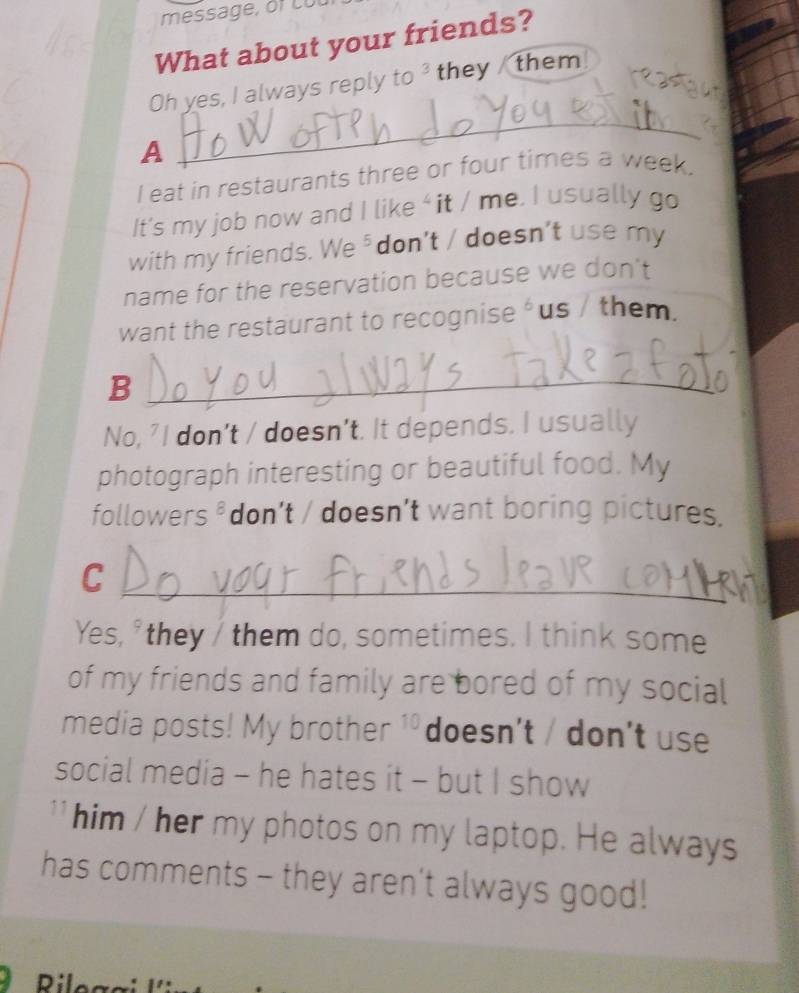 message, or
What about your friends?
Oh yes, I always reply to ³ they / them!
A How often do you eat in
I eat in restaurants three or four times a week.
It's my job now and I like ⁴ it / me. I usually go
with my friends. We ⁵ don't / doesn't use my
name for the reservation because we don't
want the restaurant to recognise ⁶ us / them.
B Do you always take a foto
No, ⁷ I don't / doesn't. It depends. I usually
photograph interesting or beautiful food. My
followers ⁸ don't / doesn't want boring pictures.
C Do your friends leave
Yes, ⁹ they / them do, sometimes. I think some
of my friends and family are bored of my social
media posts! My brother ¹⁰ doesn't / don't use
social media – he hates it – but I show
¹¹ him / her my photos on my laptop. He always
has comments – they aren't always good!